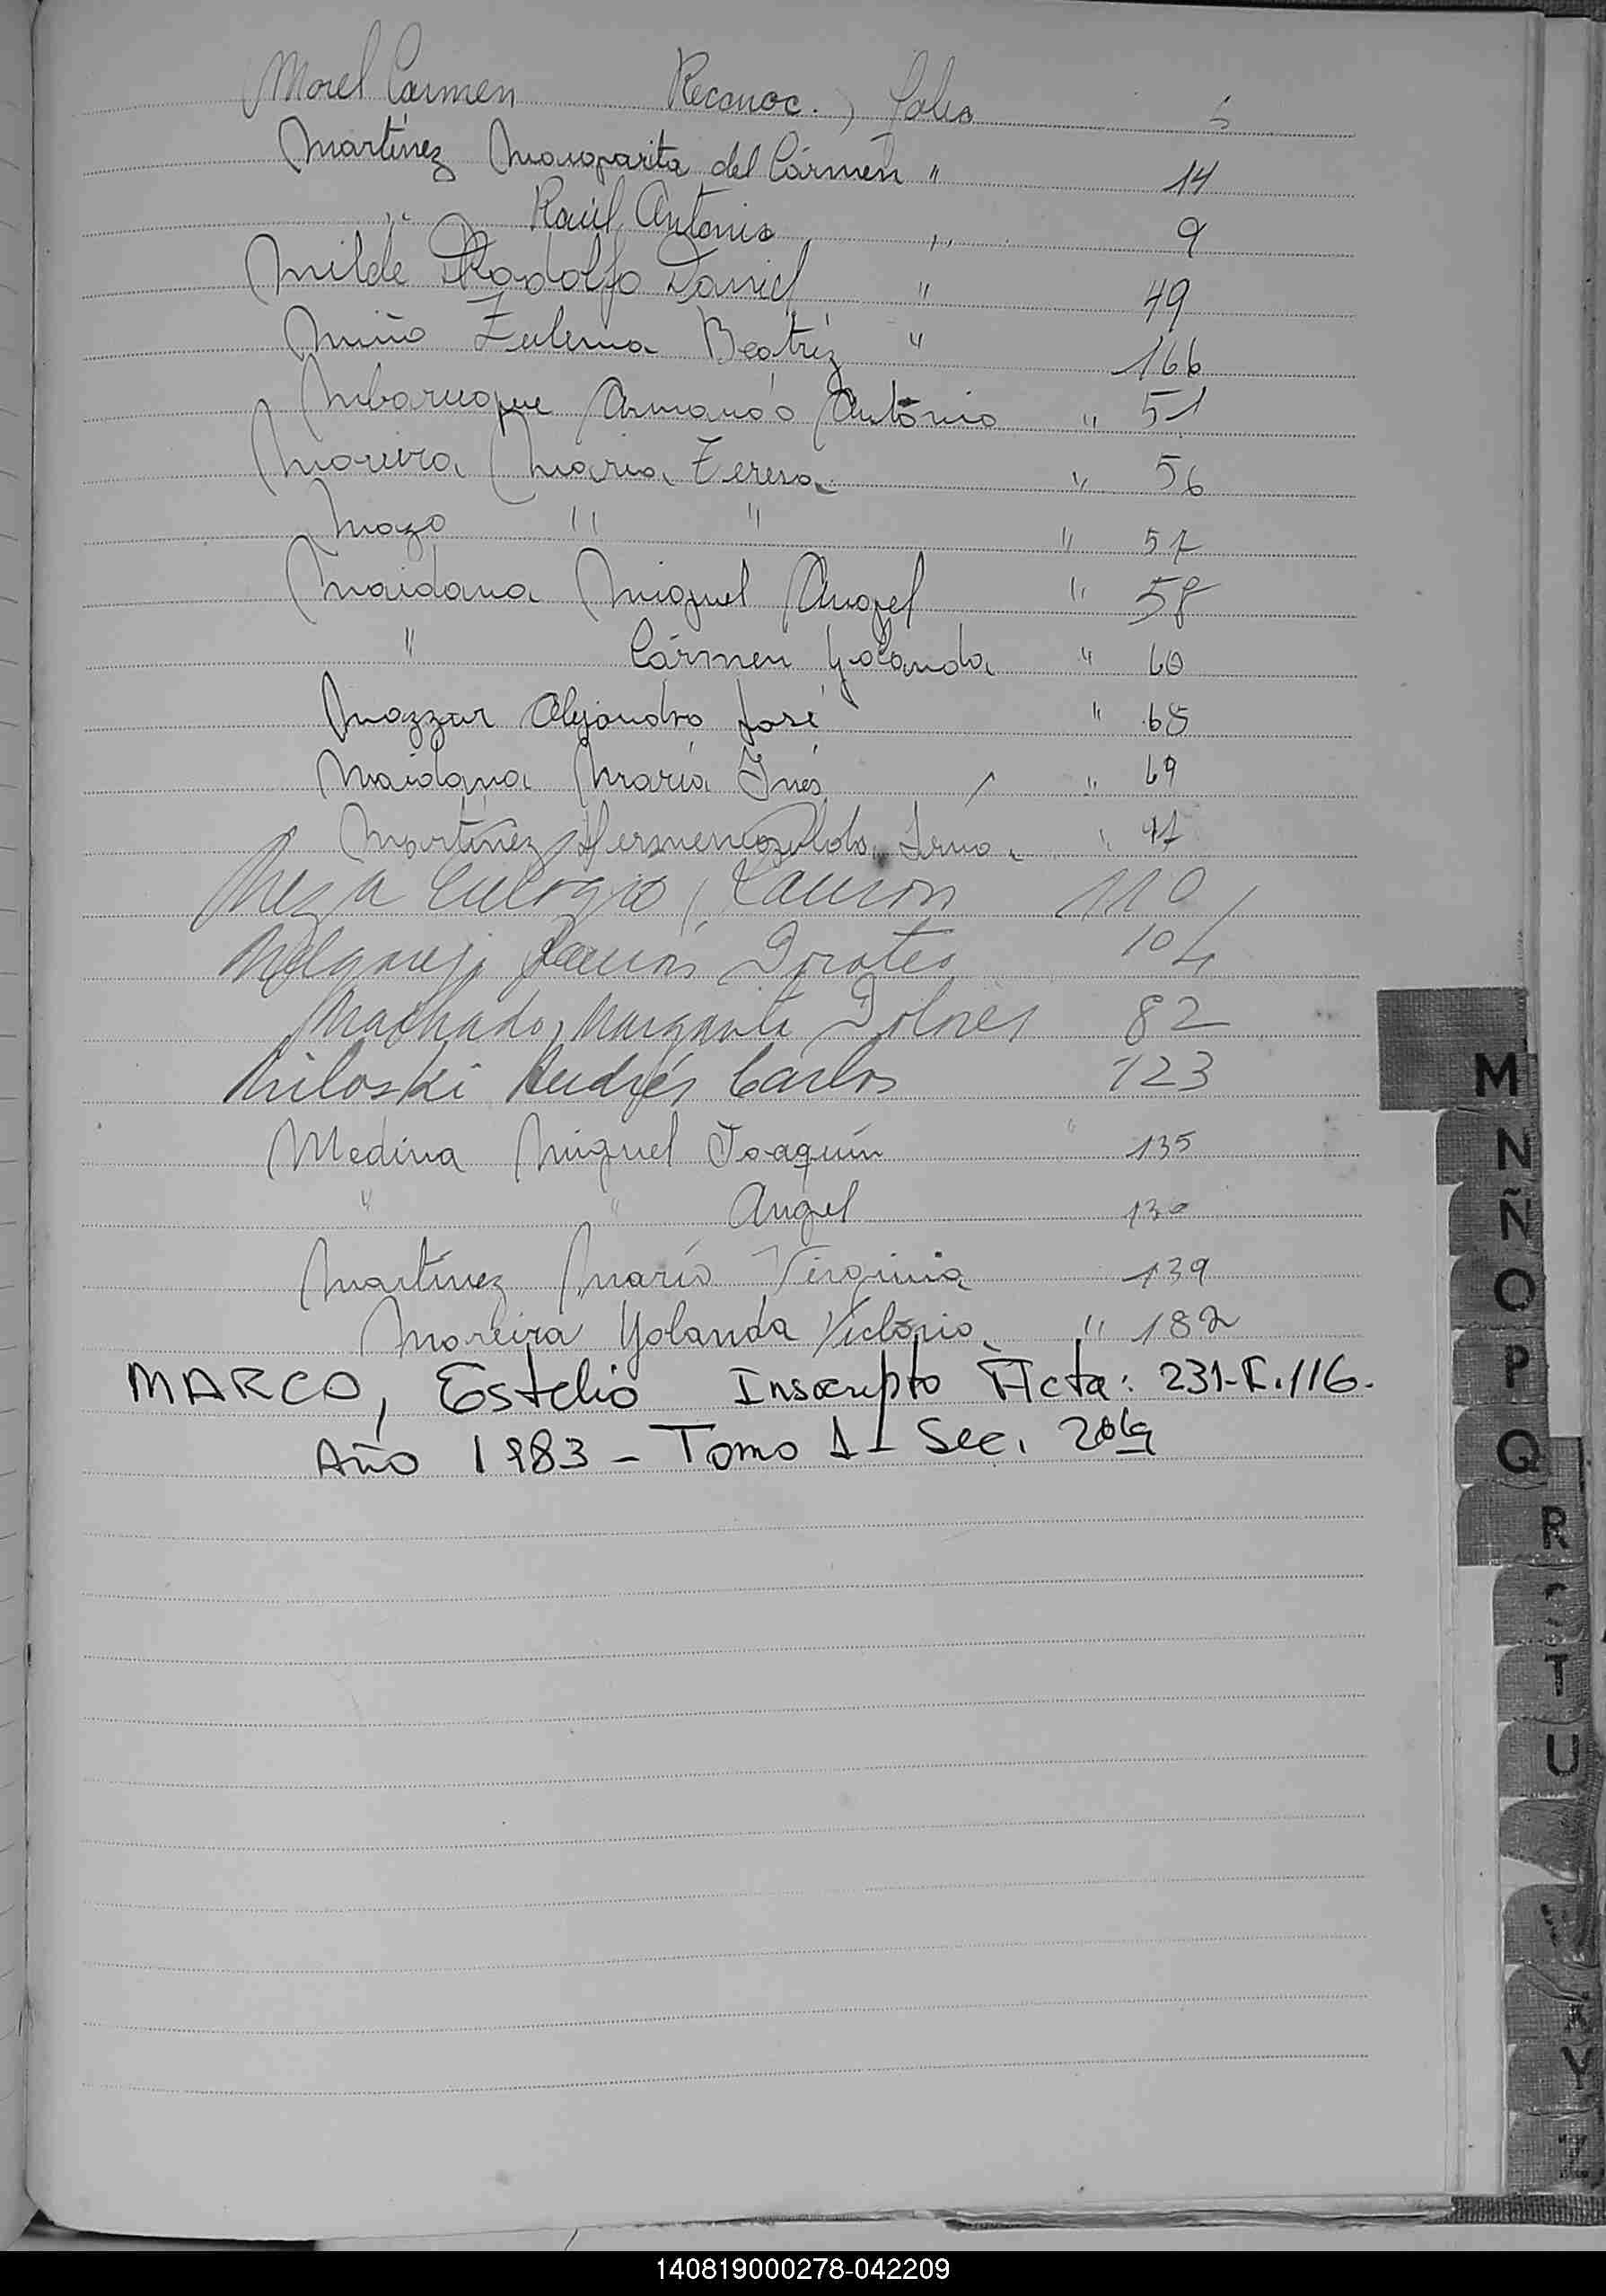 Morel Carmen Reconoc., Folio 5
Martínez Margarita del Cármen " 14
" Raúl Antonio " 9
Milde Rodolfo Daniel " 49
Miño Zulema Beatríz " 166
Mbarucque Armando Antonio " 51
Moreira María Teresa " 56
Mazo " " " 57
Maidana Miguel Angel " 58
" Cármen Yolanda " 60
Mazzur Alejandro José " 68
Maidana María Inés " 69
Martínez Hermenegilda Irma " 97
Meza Eulogio, Ramón 110
Melgarejo Ramón Doroteo 104
Machado, Margarita Dolores 82
Miloski Andrés Carlos 123
Medina Miguel Joaquín " 135
" " Angel 130
Martínez María Virginia 139
Moreira Yolanda Victoria " 182
MARCO, Estelio Inscripto Acta: 231-F.116.
Año 1983 - Tomo 1- Sec.
M
N
Ñ
O
P
Q
R
S
T
U
Y
Z
140819000278-042209